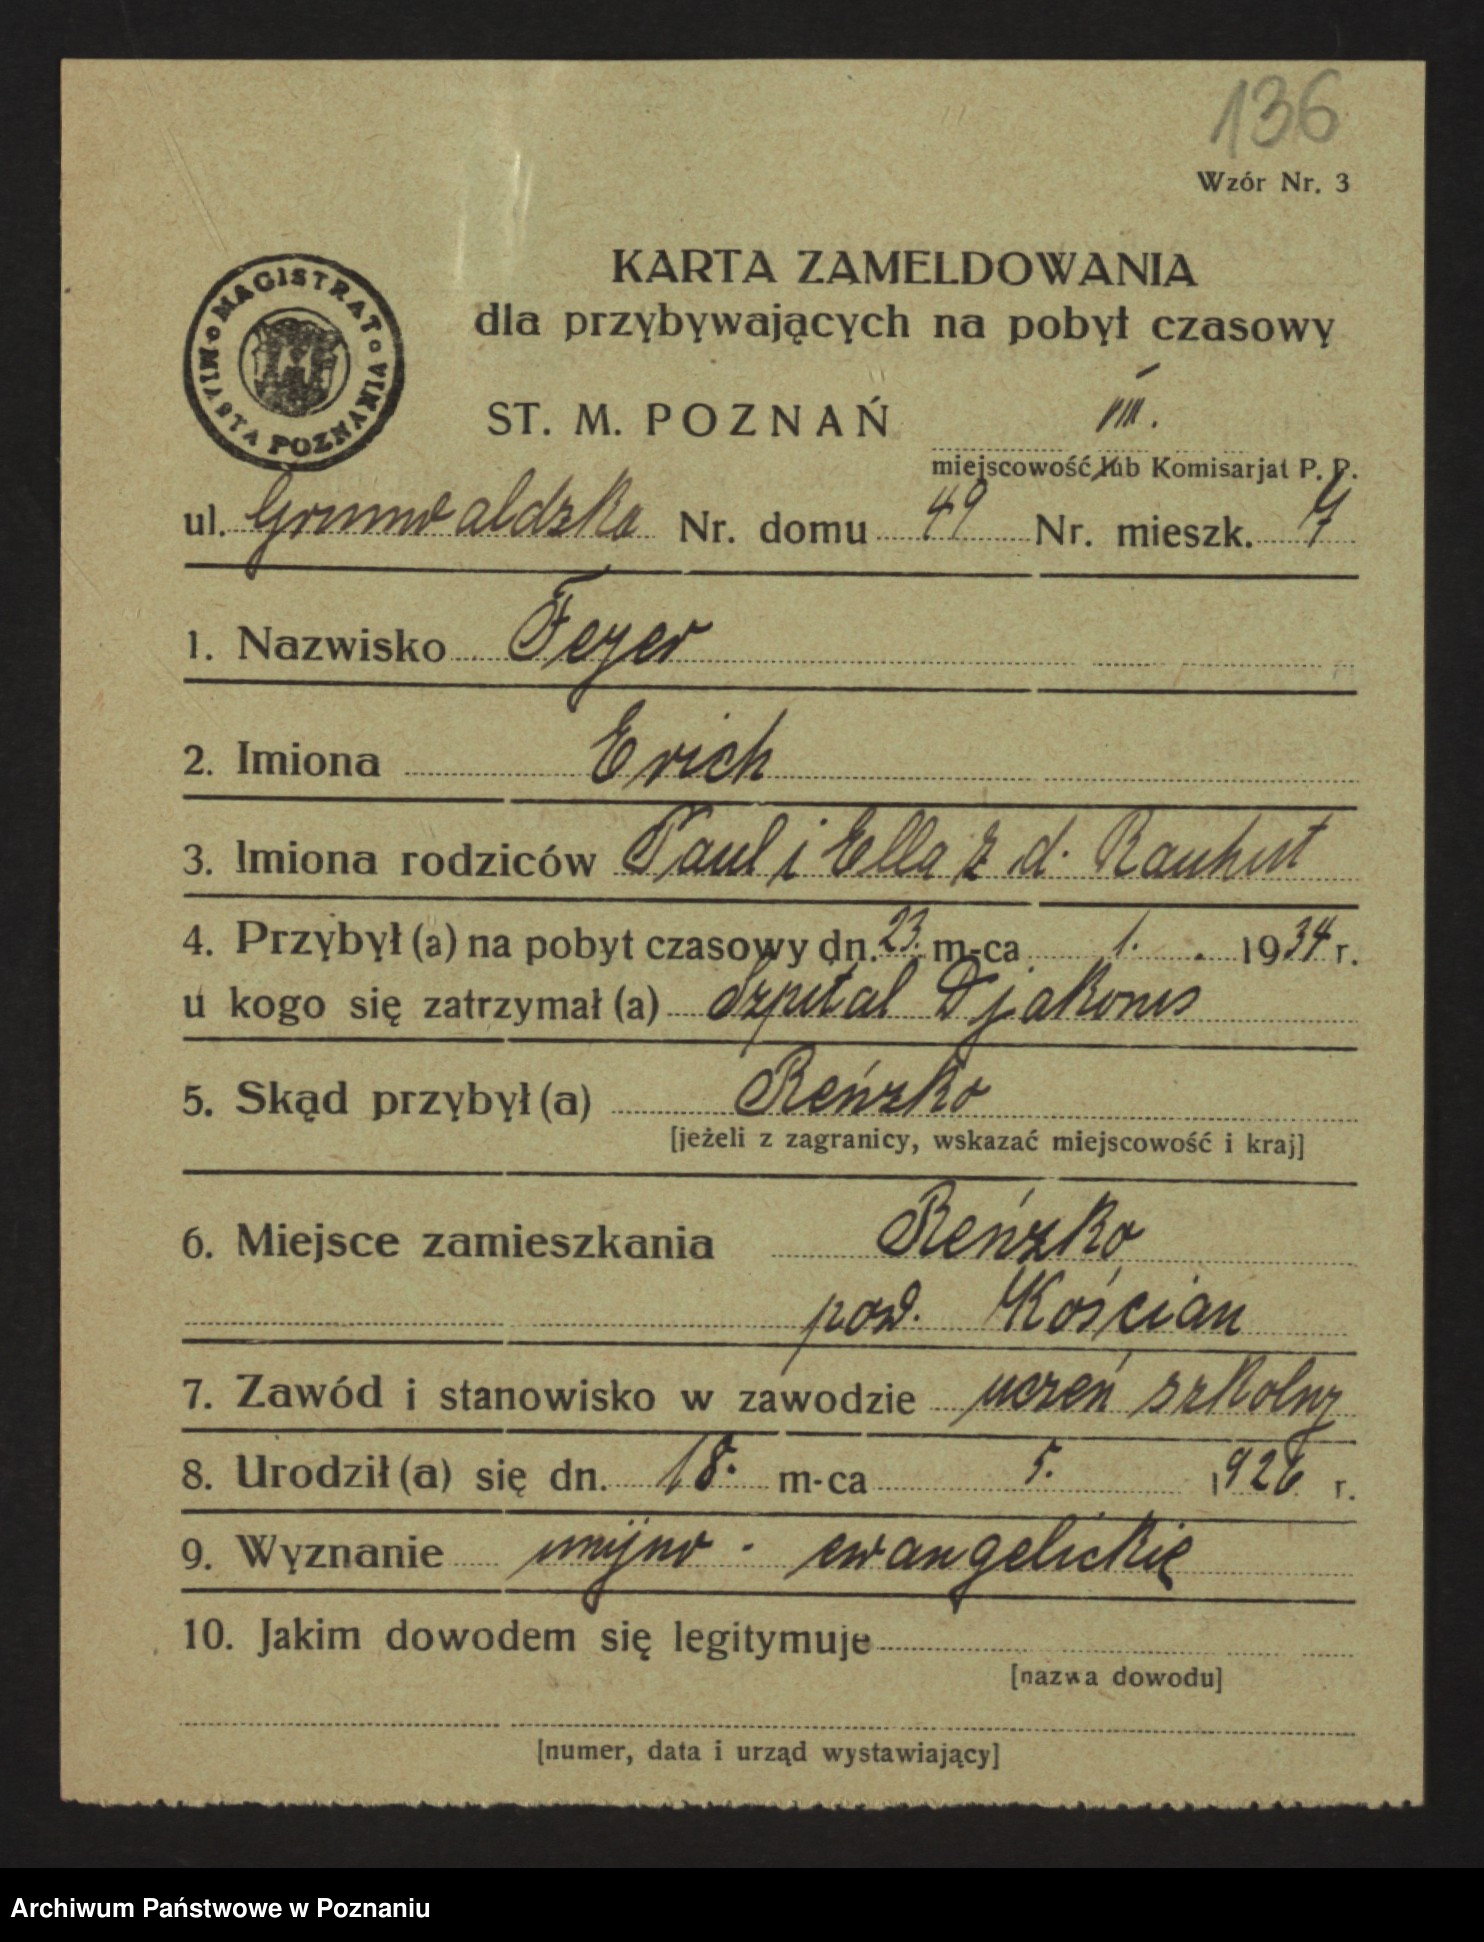 136
Wzór Nr. 3
MAGISTRAT MIASTA POZNANIA
KARTA ZAMELDOWANIA
dla przybywających na pobyt czasowy
ST. M. POZNAŃ VIII.
miejscowość lub Komisarjat P. P.
ul. Grunwaldzka Nr. domu 49 Nr. mieszk. 7
1. Nazwisko Feyer
2. Imiona Erich
3. Imiona rodziców Paul i Ella z d. Rauhut
4. Przybył (a) na pobyt czasowy dn. 23. m-ca 1. 1934 r.
u kogo się zatrzymał (a) Szpital Djakonis
5. Skąd przybył (a) Reńsko
[jeżeli z zagranicy, wskazać miejscowość i kraj]
6. Miejsce zamieszkania Reńsko
pow. Kościan
7. Zawód i stanowisko w zawodzie uczeń szkolny
8. Urodził (a) się dn. 18. m-ca 5. 1926 r.
9. Wyznanie unijno - ewangelickie
10. Jakim dowodem się legitymuje
[nazwa dowodu]
[numer, data i urząd wystawiający]
Archiwum Państwowe w Poznaniu